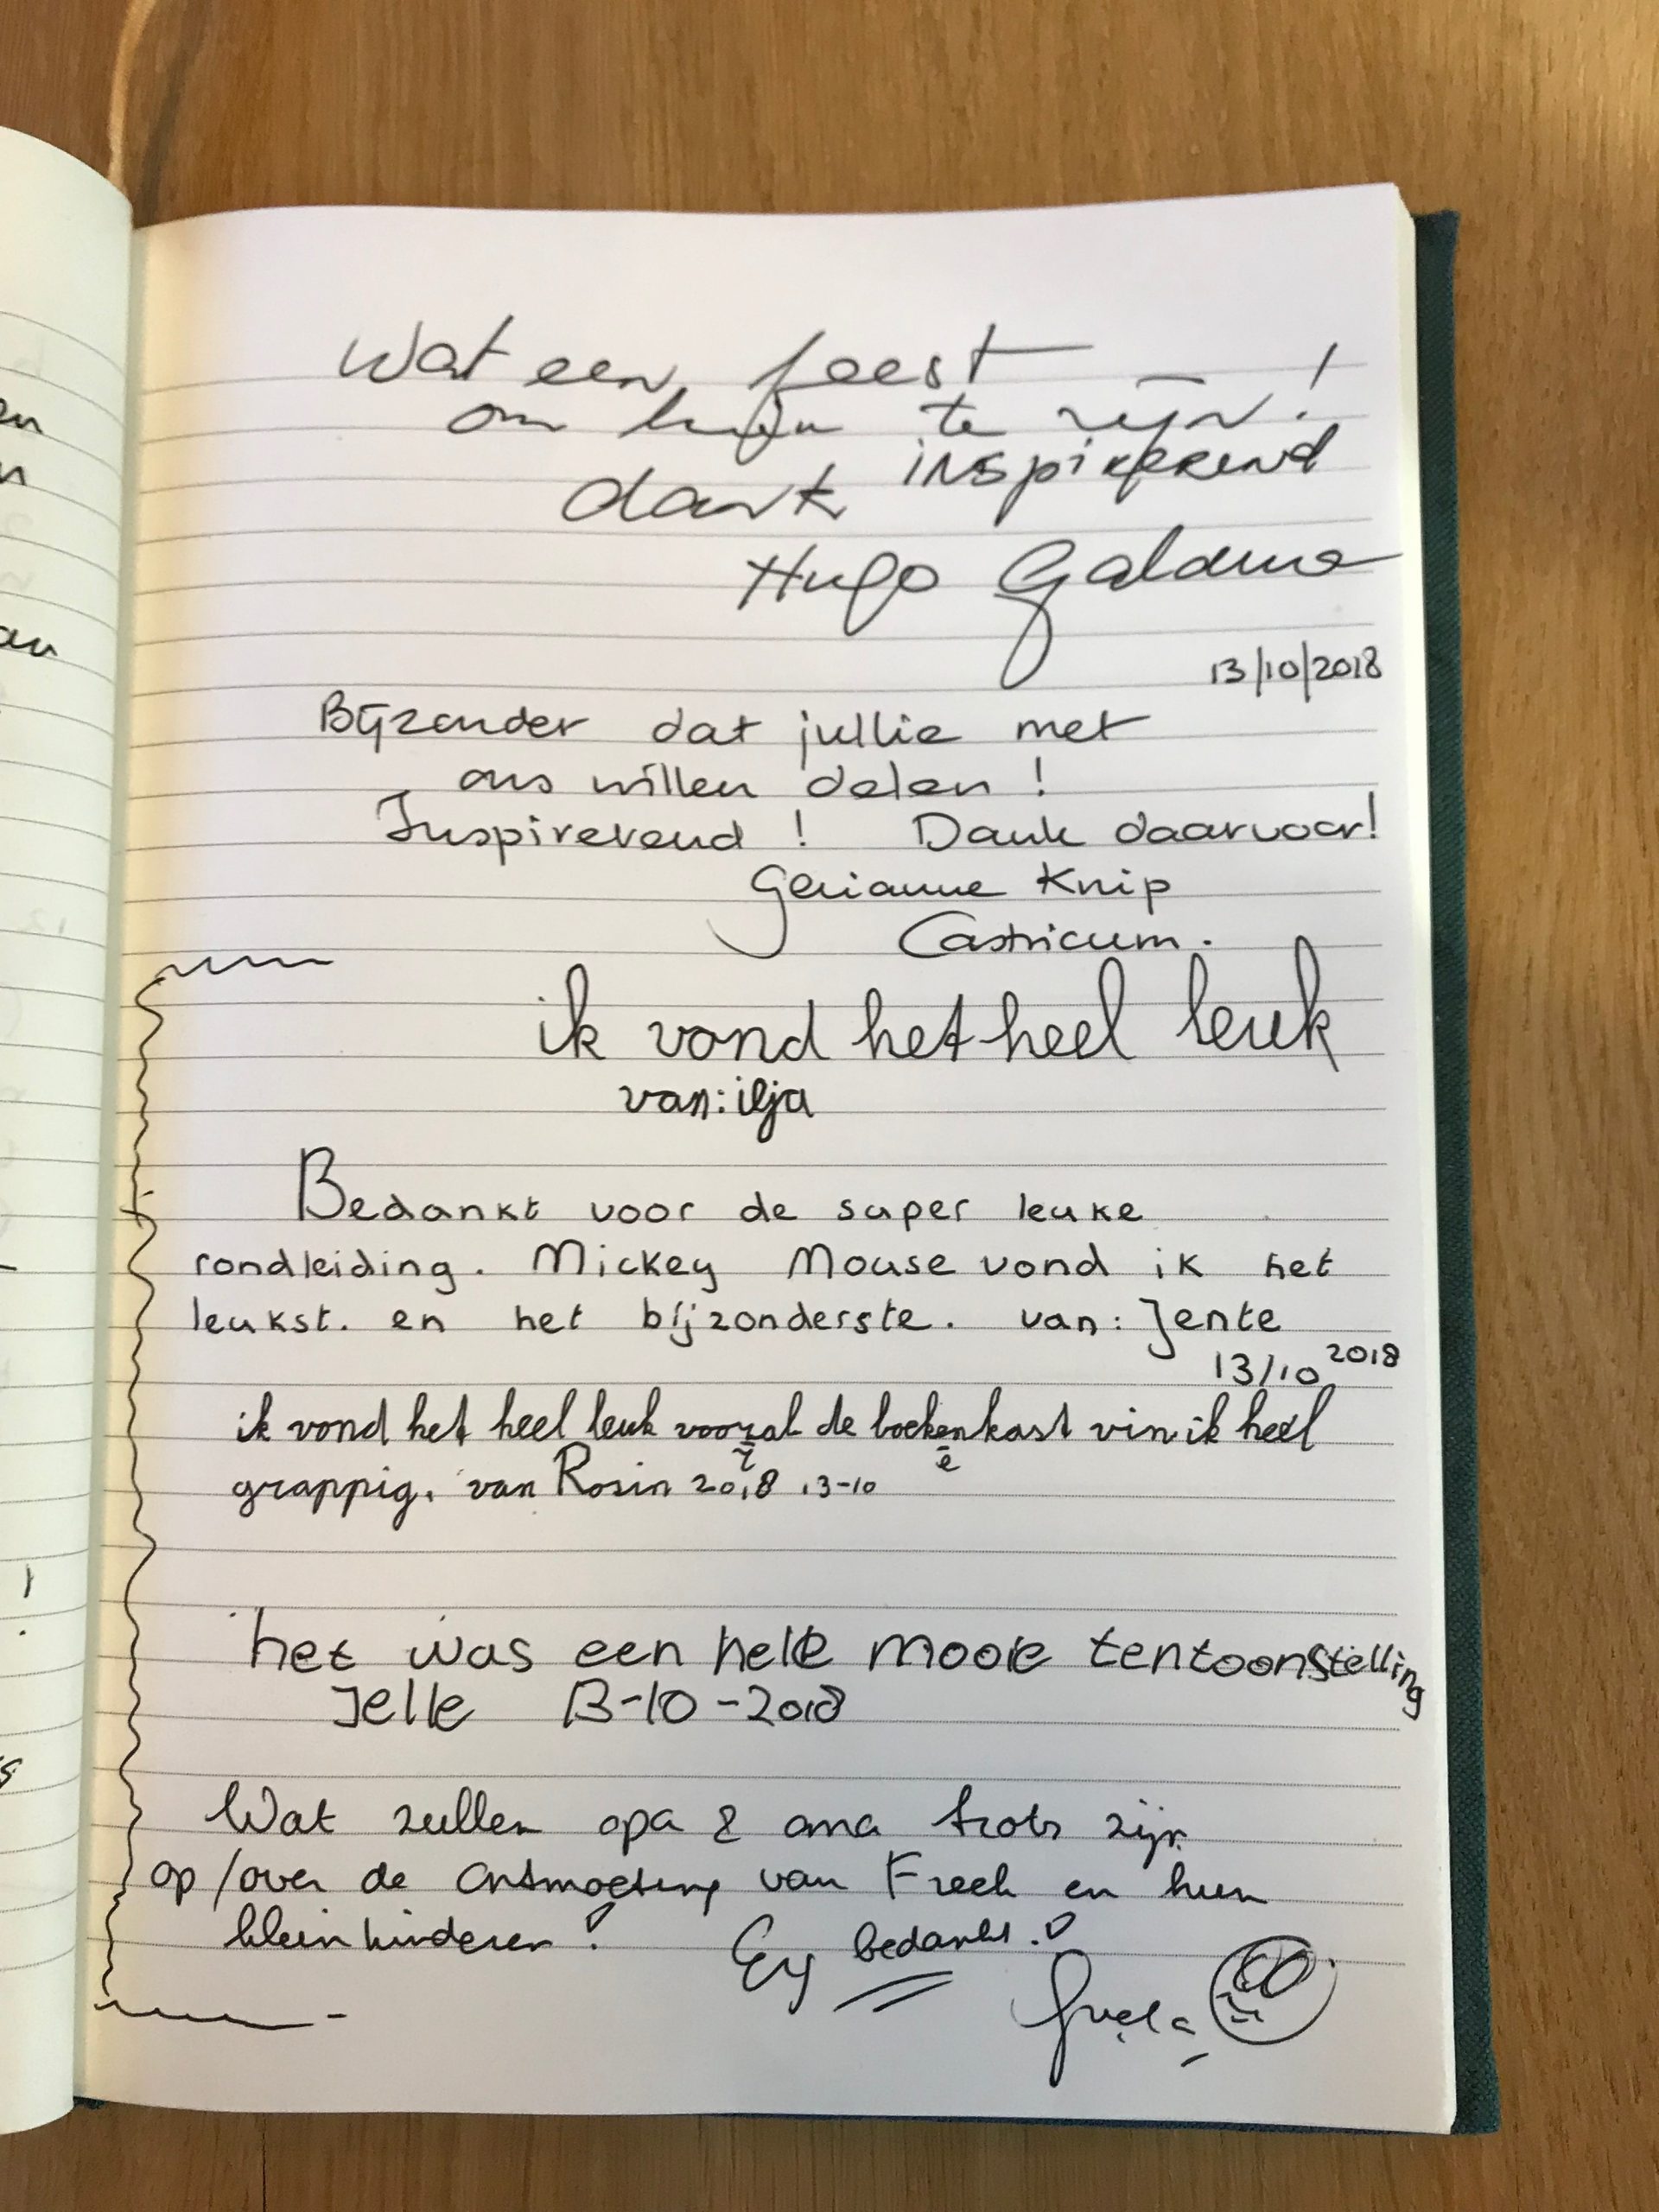 Wat een feest
om hier te zijn!
inspirerend
dank
Hugo
13/10/2018
Bijzonder dat jullie met
ons willen delen!
Inspirerend! Dank daarvoor!
Gerianne Knip
Castricum.
ik vond het heel leuk
van: ilja
Bedankt voor de super leuke
rondleiding. Mickey Mouse vond ik het
leukst. en het bijzonderste. van: Jente
13/10 2018
ik vond het heel leuk vooral de boekenkast vin ik heel
grappig. van Rosin 2018 13-10
het was een hele mooie tentoonstelling
Jelle 13-10-2018
Wat zullen opa & oma trots zijn
op/over de ontmoeting van Freek en hun
kleinkinderen!
bedankt!